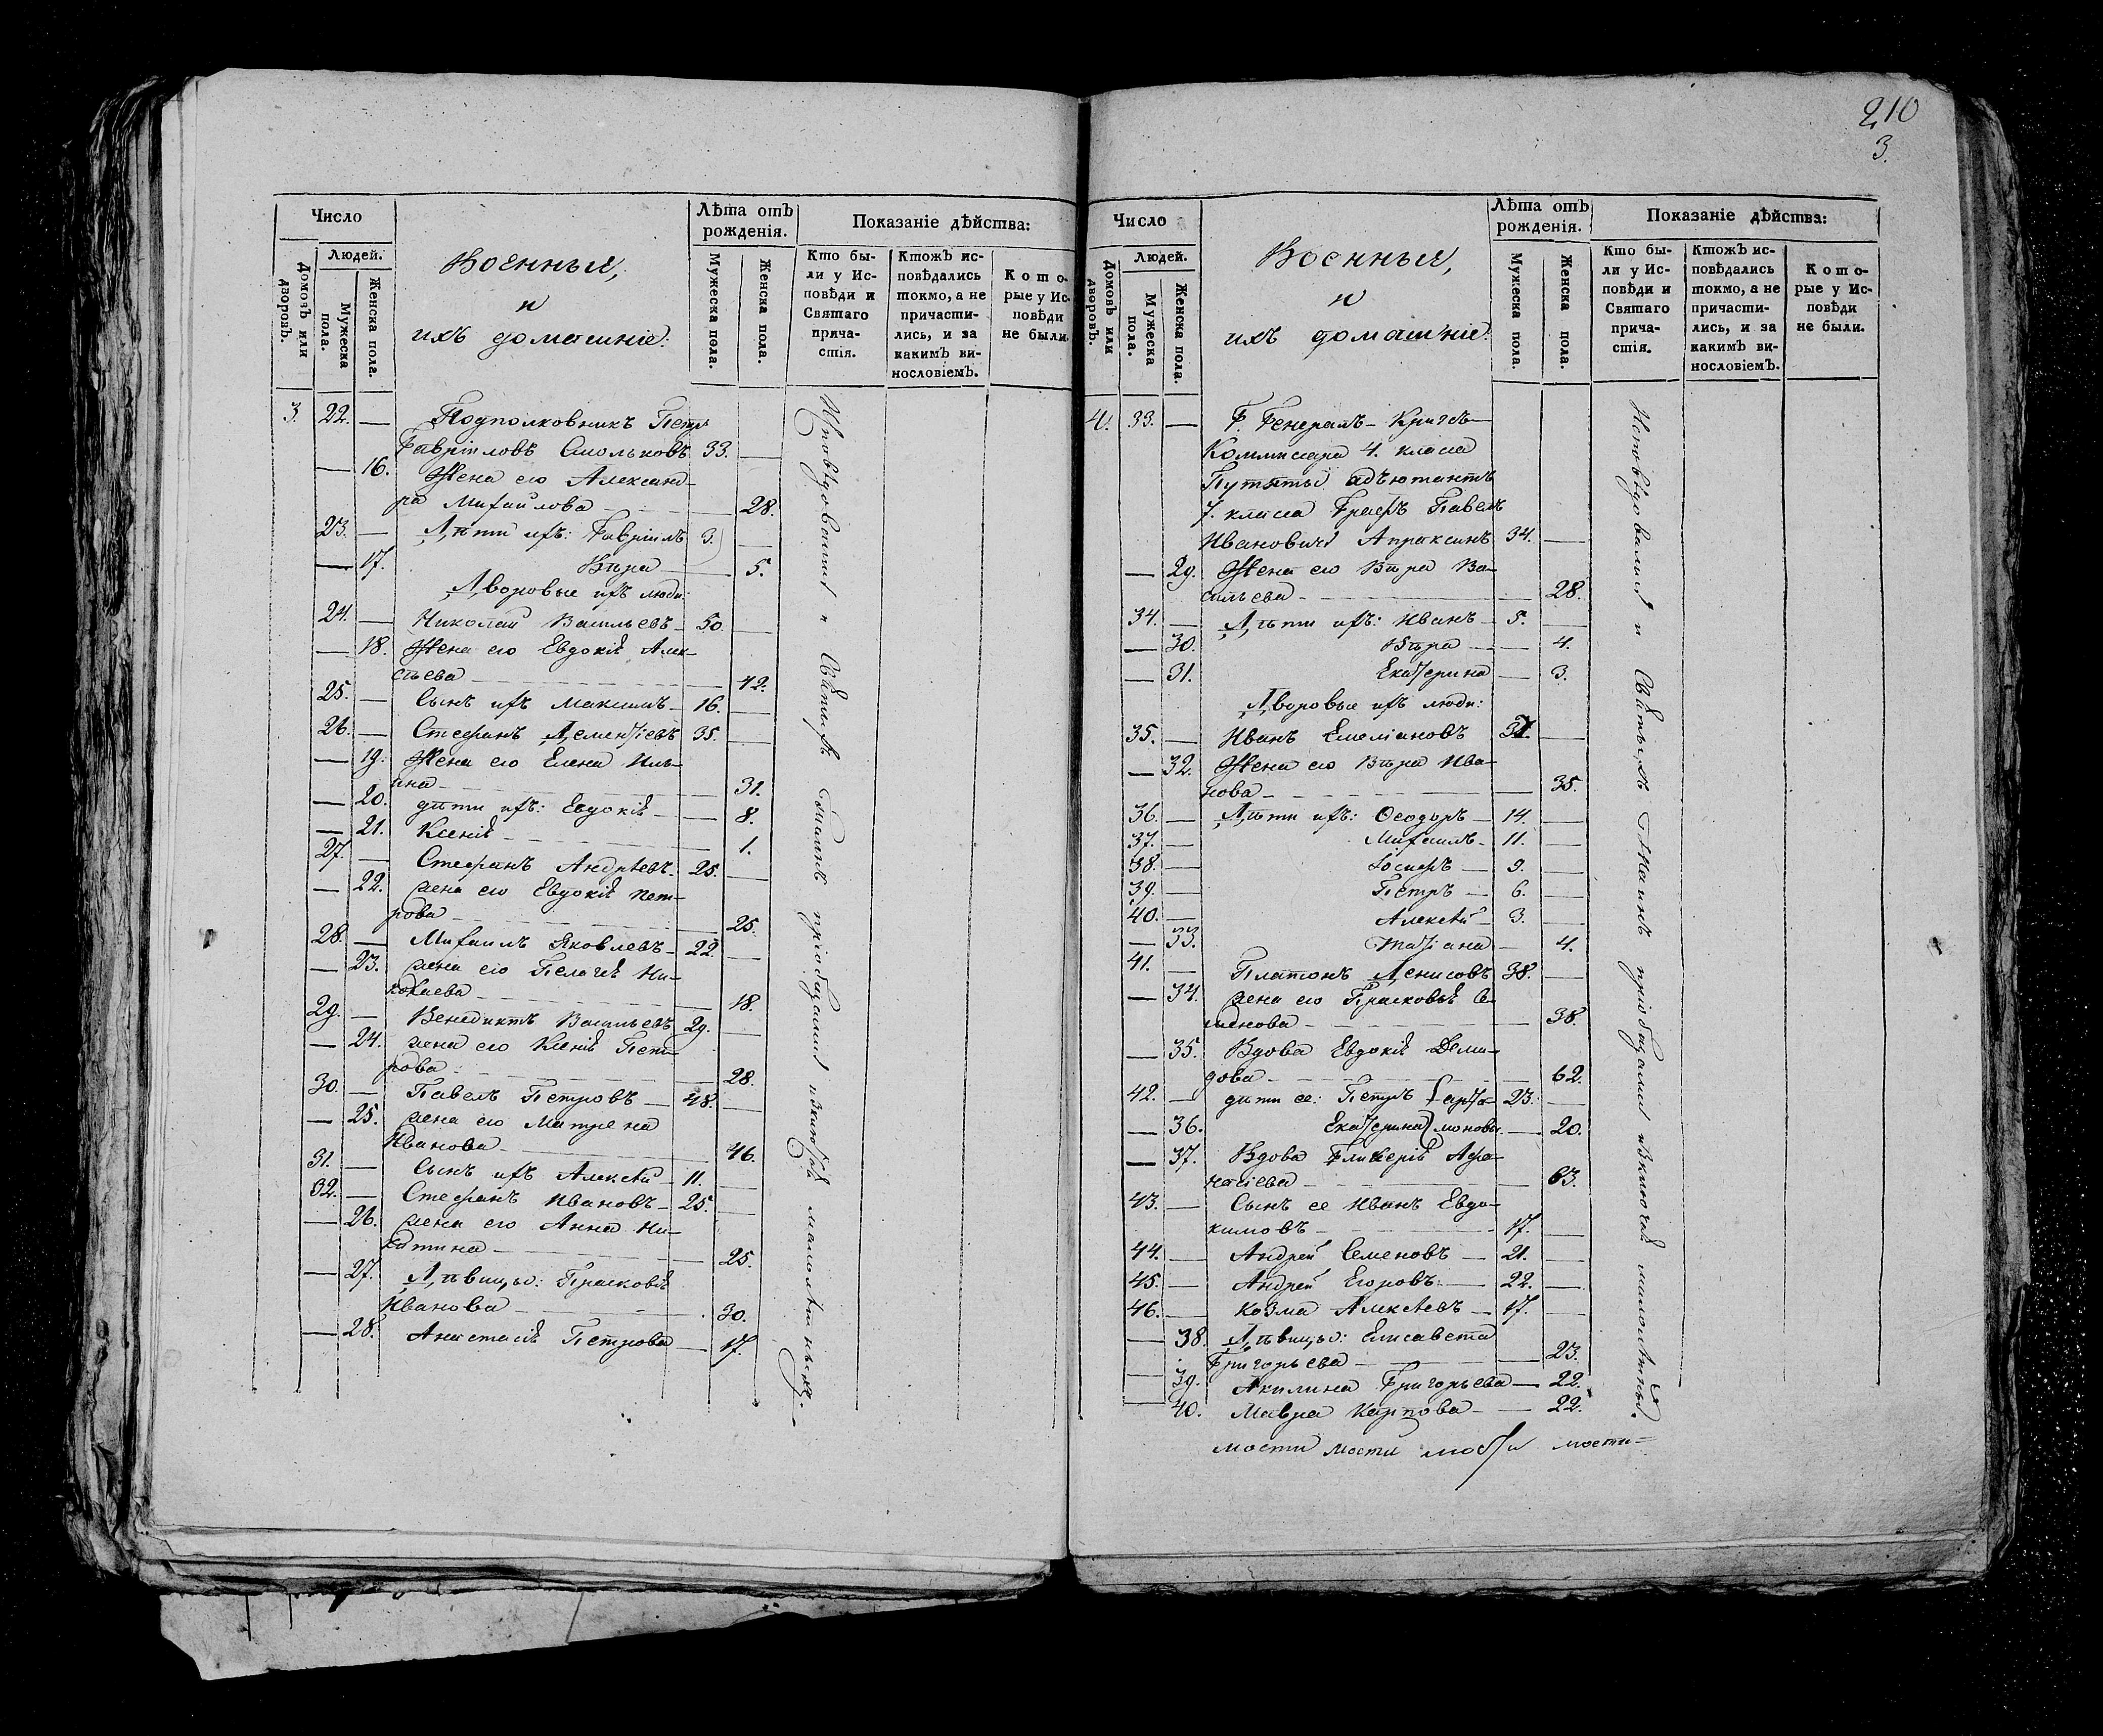 210
3.
Число
Людей.
Домовъ или дворовъ.
Мужеска пола.
Женска пола.
Военныя,
и
ихъ домашніе:
Лѣта отъ рожденія.
Мужеска пола.
Женска пола.
Показаніе дѣйства:
Кто бы-
ли у Ис-
повѣди и
Святаго
прича-
стія.
Ктожъ ис-
повѣдались
токмо, а не
причасти-
лись, и за
какимъ ви-
нословіемъ.
Кото-
рые у Ис-
повѣди
не были.
3. 22. — Подполковникъ Петръ
Гавріиловъ Смольковъ 33. —
— 16. Жена его Александ-
ра Михайлова — 28.
23. — Дѣти ихъ: Гавріилъ 3. —
— 17. Вѣра — 5.
Дворовые ихъ люди:
24. — Николай Васильевъ 50. —
— 18. Жена его Евдокія Алек-
сѣева — 42.
25. — Сынъ ихъ Максимъ 16. —
26. — Стефанъ Дементіевъ 35. —
— 19. Жена его Елена Иль-
ина — 31.
— 20. дѣти ихъ: Евдокія — 8.
— 21. Ксенія — 1.
27. — Стефанъ Андрѣевъ 25. —
— 22. жена его Евдокія Пет-
рова — 25.
28. — Михаилъ Яковлевъ 22. —
— 23. жена его Пелагія Ни-
колаева — 18.
29. — Венедиктъ Васильевъ 29. —
— 24. жена его Ксенія Пет-
рова — 28.
30. — Павелъ Петровъ 48. —
— 25. жена его Матрена
Иванова — 46.
31. — Сынъ ихъ Алексѣй 11. —
32. — Стефанъ Ивановъ 25. —
— 26. жена его Анна Ни-
китина — 25.
— 27. Дѣвицы: Прасковія
Иванова — 30.
— 28. Анастасія Петрова — 17.
Исповѣдовались и Святыхъ Таинъ пріобщались
Число
Людей.
Домовъ или дворовъ.
Мужеска пола.
Женска пола.
Военныя,
и
ихъ домашніе:
Лѣта отъ рожденія.
Мужеска пола.
Женска пола.
Показаніе дѣйства:
Кто бы-
ли у Ис-
повѣди и
Святаго
прича-
стія.
Ктожъ ис-
повѣдались
токмо, а не
причасти-
лись, и за
какимъ ви-
нословіемъ.
Кото-
рые у Ис-
повѣди
не были.
4. 33. — Г. Генералъ-Кригсъ-
Коммисара 4. класа
Путяты адъютантъ
7. класа Графъ Павелъ
Ивановичь Апраксинъ 34. —
— 29. Жена его Вѣра Ва-
сильева — 28.
34. — Дѣти ихъ: Иванъ 5. —
— 30. Вѣра — 4.
— 31. Екатерина — 3.
Дворовые ихъ люди:
35. — Иванъ Емеліановъ —
— 32. Жена его Вѣра Ива-
нова — 35.
36. — Дѣти ихъ: Ѳеодоръ 14. —
37. — Михаилъ 11. —
38. — Іосифъ 9. —
39. — Петръ 6. —
40. — Алексѣй 3. —
— 33. Татіана — 4.
41. — Платонъ Денисовъ 38. —
— 34. жена его Прасковія Се-
менова — 38.
— 35. Вдова Евдокія Деми-
дова — 62.
42. — дѣти ее: Петръ } арта- 23. —
— 36. Екатерина } моновы — 20.
— 37. Вдова Гликерія Афа-
насіева — 63.
43. — Сынъ ее Иванъ Евдо-
кимовъ 17. —
44. — Андрей Семеновъ 21. —
45. — Андрей Егоровъ 22. —
46. — Козма Алексѣевъ 17. —
— 38. Дѣвицы: Елисавета
Григорьева — 23.
— 39. Акилина Григорьева — 22.
— 40. Мавра Карпова — 22.
Исповѣдовались и Святыхъ Таинъ пріобщались исключая малолѣтныхъ.